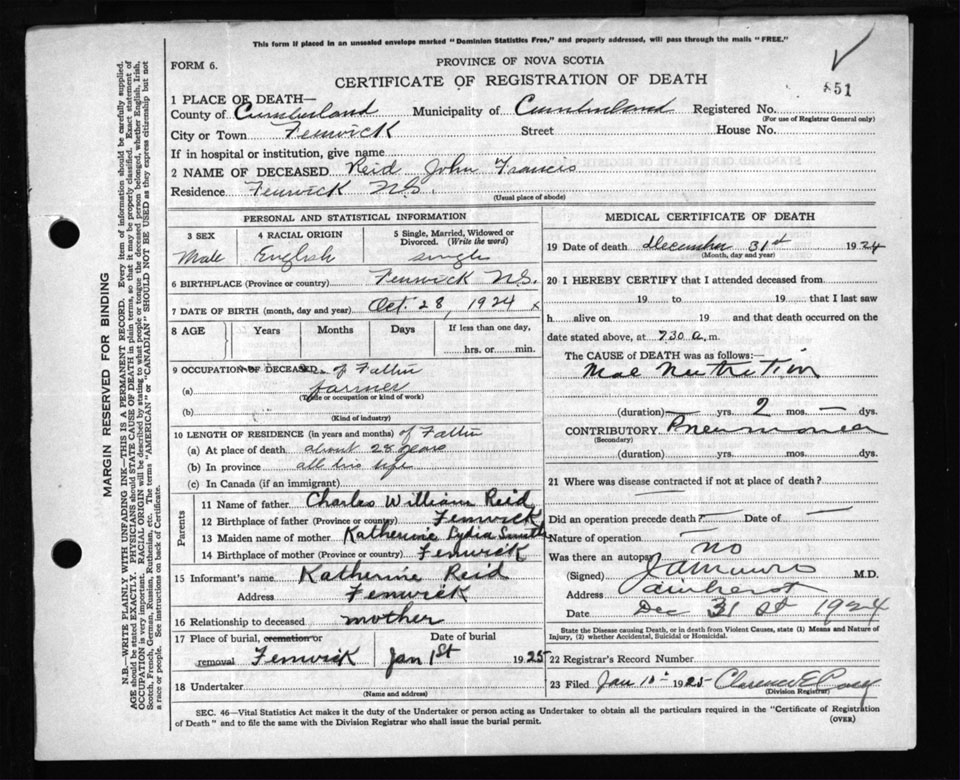 This form if placed in an unsealed envelope marked "Dominion Statistics Free," and properly addressed, will pass through the mails "FREE."
FORM 6.
PROVINCE OF NOVA SCOTIA
CERTIFICATE OF REGISTRATION OF DEATH
51
1 PLACE OF DEATH—
County of Cumberland Municipality of Cumberland Registered No.
(For use of Registrar General only)
City or Town Fenwick Street House No.
If in hospital or institution, give name
2 NAME OF DECEASED Reid John Francis
Residence Fenwick N.S.
(Usual place of abode)
PERSONAL AND STATISTICAL INFORMATION
3 SEX 4 RACIAL ORIGIN 5 Single, Married, Widowed or Divorced. (Write the word)
Male English single
6 BIRTHPLACE (Province or country) Fenwick N.S.
7 DATE OF BIRTH (month, day and year) Oct. 28, 1924 x
8 AGE Years Months Days If less than one day,
hrs. or min.
9 OCCUPATION OF DECEASED of Father
(a) farmer
(Trade or occupation or kind of work)
(b)
(Kind of industry)
10 LENGTH OF RESIDENCE (in years and months) of Father
(a) At place of death about 28 years
(b) In province all his life
(c) In Canada (if an immigrant)
Parents
11 Name of father Charles William Reid
12 Birthplace of father (Province or country) Fenwick
13 Maiden name of mother Katherine Lydia Smith
14 Birthplace of mother (Province or country) Fenwick
15 Informant's name Katherine Reid
Address Fenwick
16 Relationship to deceased mother
17 Place of burial, cremation or Date of burial
removal Fenwick Jan 1st 1925
18 Undertaker
(Name and address)
MEDICAL CERTIFICATE OF DEATH
19 Date of death December 31st 1924
(Month, day and year)
20 I HEREBY CERTIFY that I attended deceased from
19 to 19 that I last saw
h alive on 19 and that death occurred on
date stated above, at 7.30 a.m.
The CAUSE OF DEATH was as follows:
Mal Nutrition
(duration) — yrs. 2 mos. — dys.
CONTRIBUTORY Pneumonia
(Secondary)
(duration) yrs. mos. dys.
21 Where was disease contracted if not at place of death?
Did an operation precede death? — Date of —
Nature of operation
Was there an autopsy no
(Signed) M.D.
Address Amherst
Date Dec 31st 1924
State the Disease causing Death, or in death from Violent Causes, state (1) Means and Nature of
Injury, (2) whether Accidental, Suicidal or Homicidal.
22 Registrar's Record Number
23 Filed Jan 1925 Clarence E.
(Division Registrar)
SEC. 46—Vital Statistics Act makes it the duty of the Undertaker or person acting as Undertaker to obtain all the particulars required in the "Certificate of Registration
of Death" and to file the same with the Division Registrar who shall issue the burial permit.
(OVER)
MARGIN RESERVED FOR BINDING
N.B.—WRITE PLAINLY WITH UNFADING INK—THIS IS A PERMANENT RECORD. Every item of information should be carefully supplied.
AGE should be stated EXACTLY. PHYSICIANS should STATE CAUSE OF DEATH in plain terms, so that it may be properly classified. Exact statement of
OCCUPATION is very important. RACIAL ORIGIN will be described by stating to what people or tongue the deceased person belonged, whether English, Irish,
Scotch, French, German, Russian, Ruthenian, etc. The terms "AMERICAN" or "CANADIAN" SHOULD NOT BE USED as they express citizenship but not
a race or people. See instructions on back of Certificate.